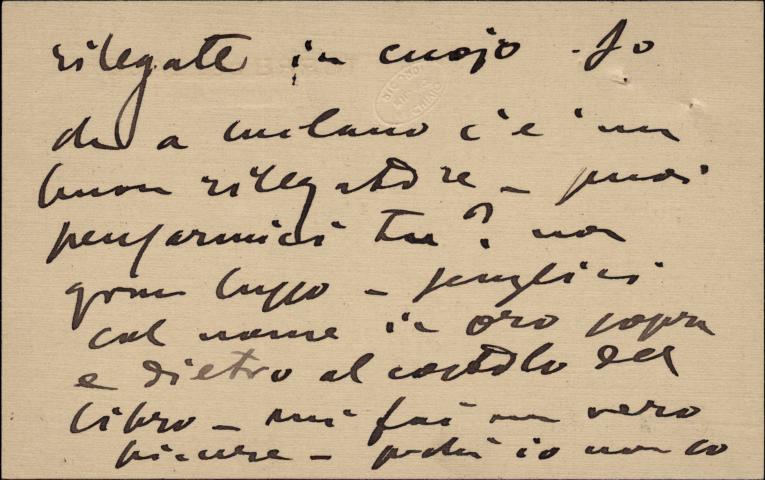 rilegate in cuojo - So
che a milano c'è un
buon rilegatore - puoi
pensarmici tu? non
gran lusso - semplici
col nome in oro sopra
e dietro al costolo del
libro - mi fai un vero
piacere - perchè io non so